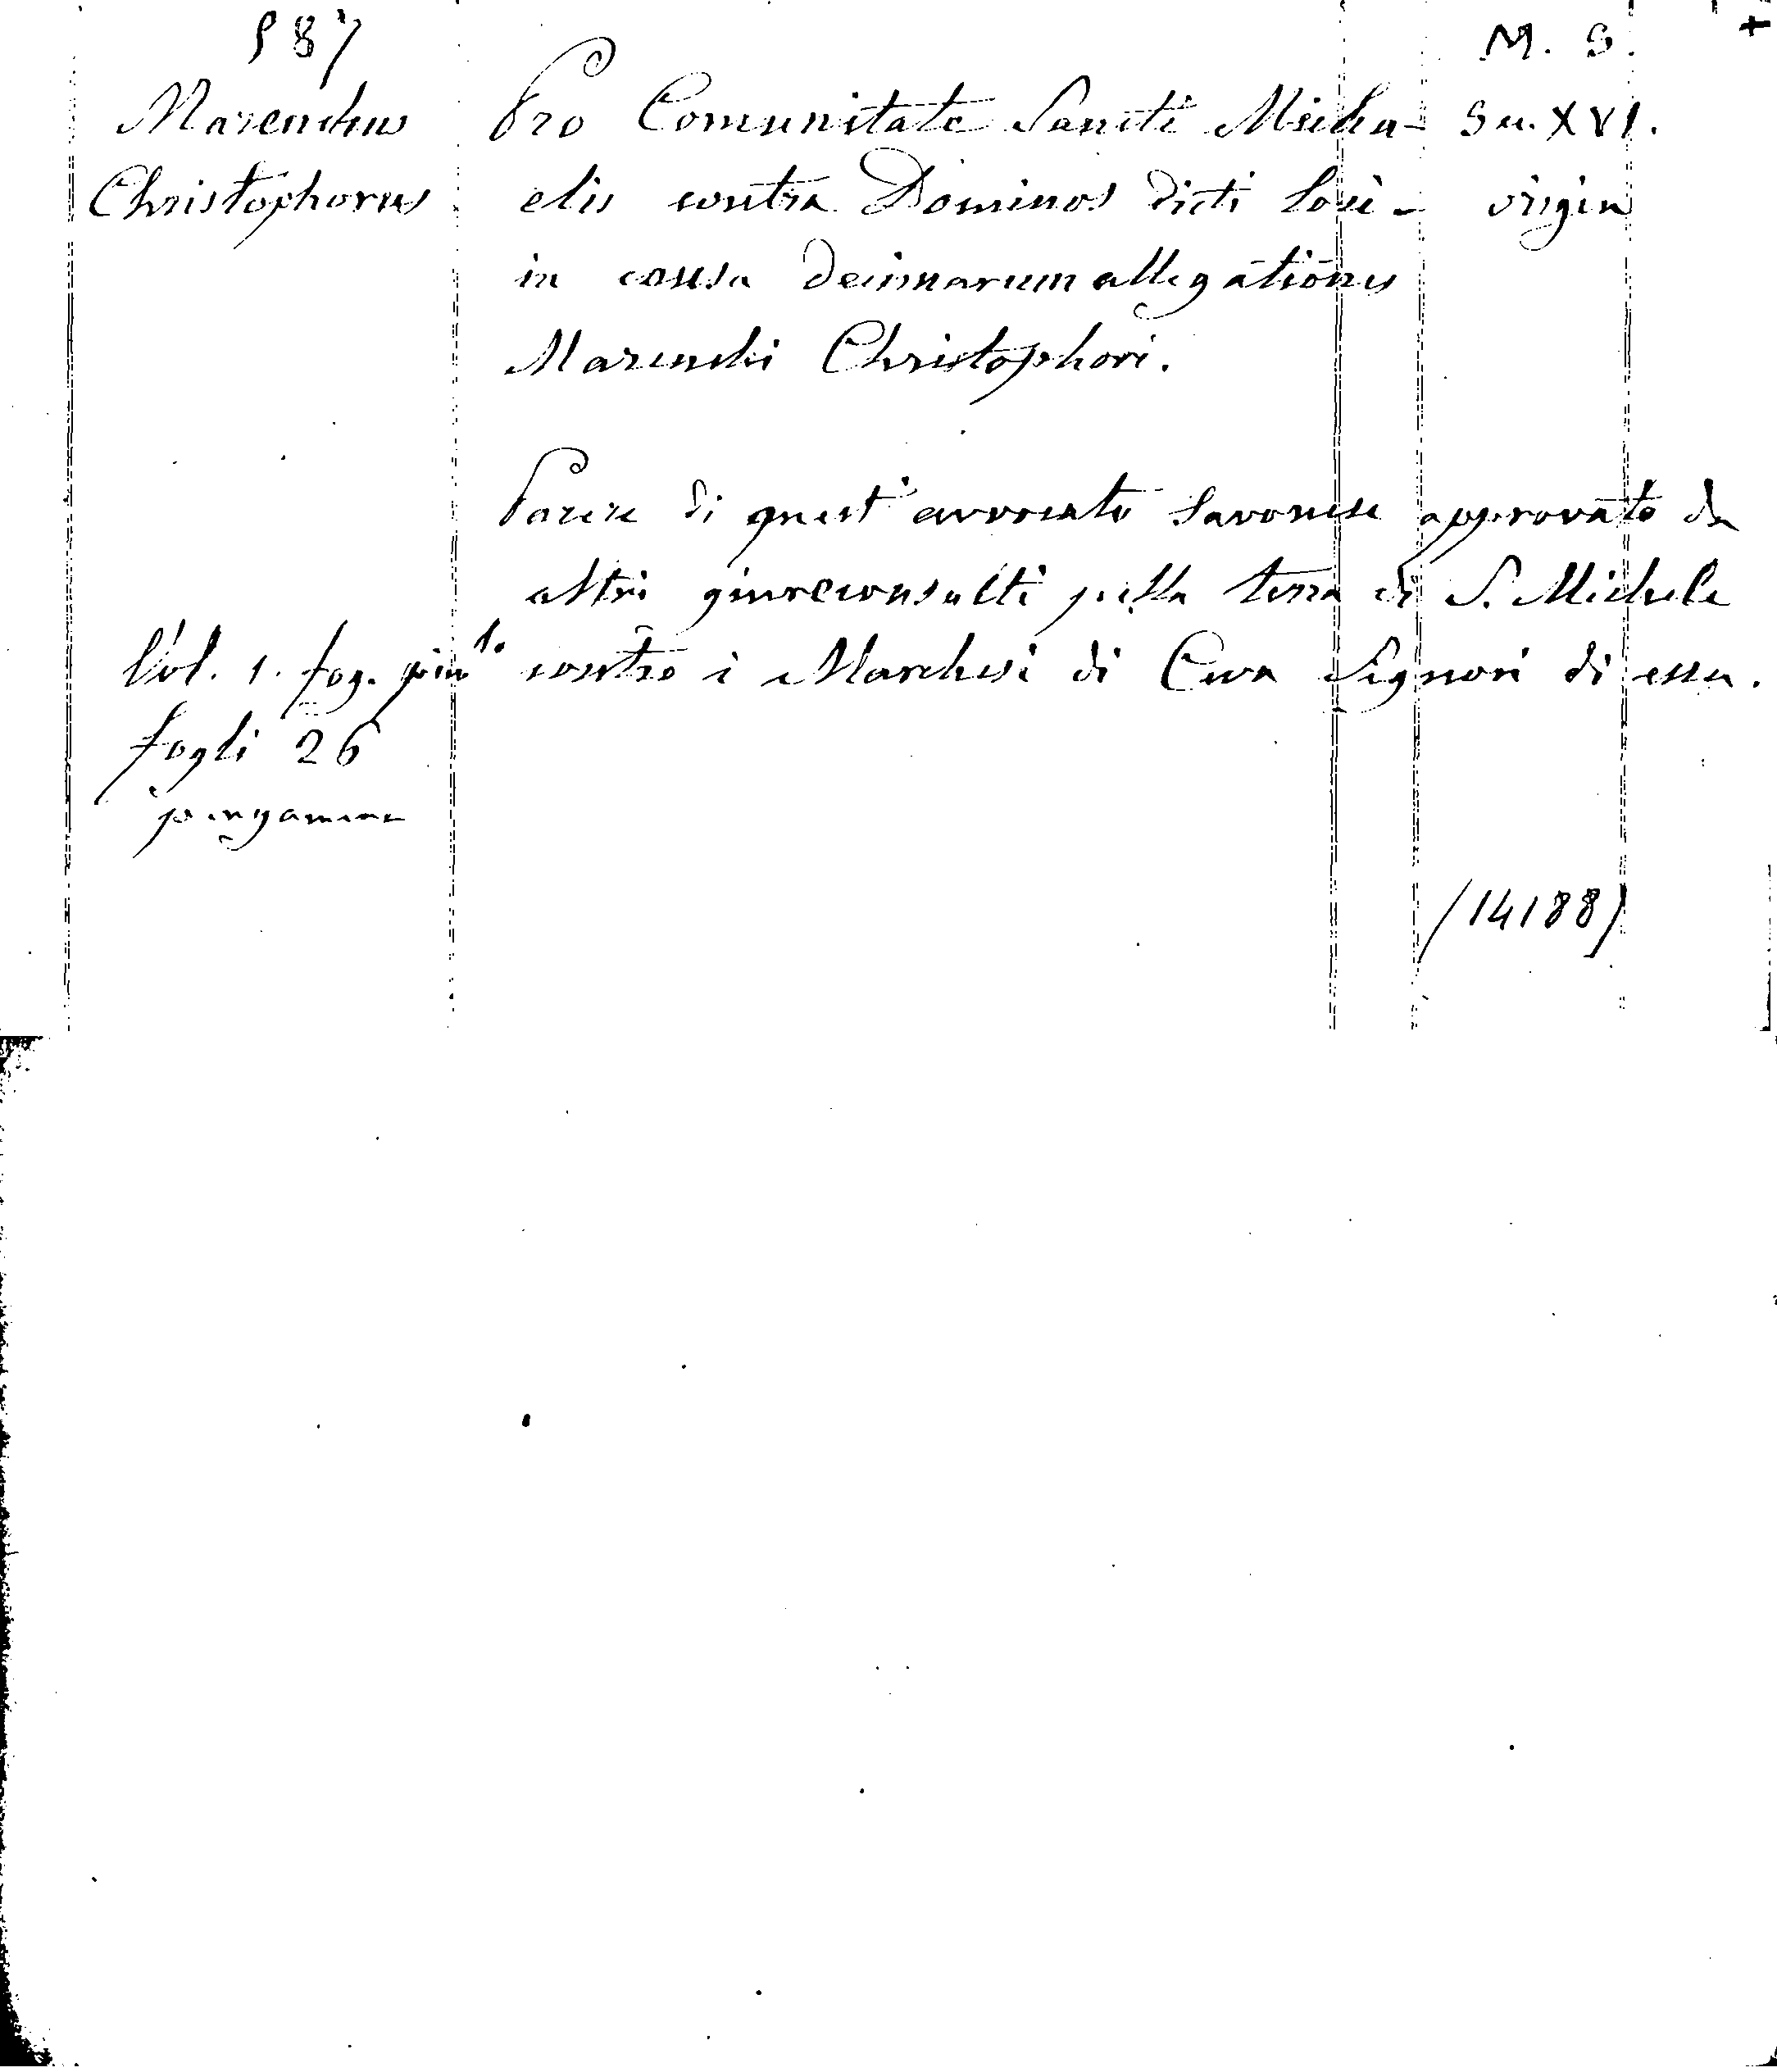 587 M. S. +
Marenchus Pro Comunitate Sancti Micha- Sec. XVI.
Christophorus elis contra Dominos dicti Loci - origin
in causa decimarum allegationes
Marenchi Christophori.
Parere di quest' avvocato Savonese approvato da
altri giureconsulti pella terra di S. Michele
Vol. 1. fog. pic.º contro i Marchesi di Ceva Signori di essa.
fogli 26
pergamena
(14188)